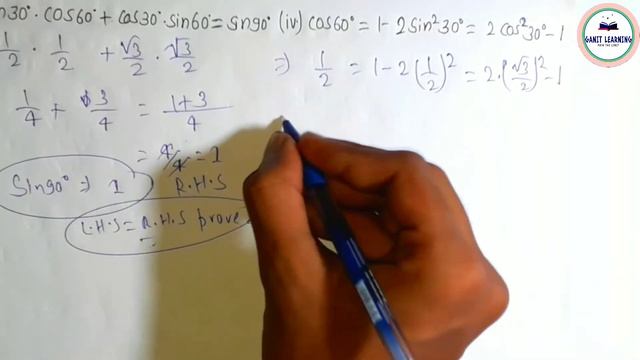 n30°. cos60° + cos30°. sin60° = sin90° (iv) cos60° = 1-2sin²30° = 2cos²30°-1
1/2 · 1/2 + √3/2 · √3/2
⇒ 1/2 = 1-2(1/2)² = 2.(√3/2)²-1
1/4 + 3/4 = 1+3/4
= 4/4 = 1
Sin90° ⇒ 1
R.H.S
L.H.S = R.H.S prove
GANIT LEARNING